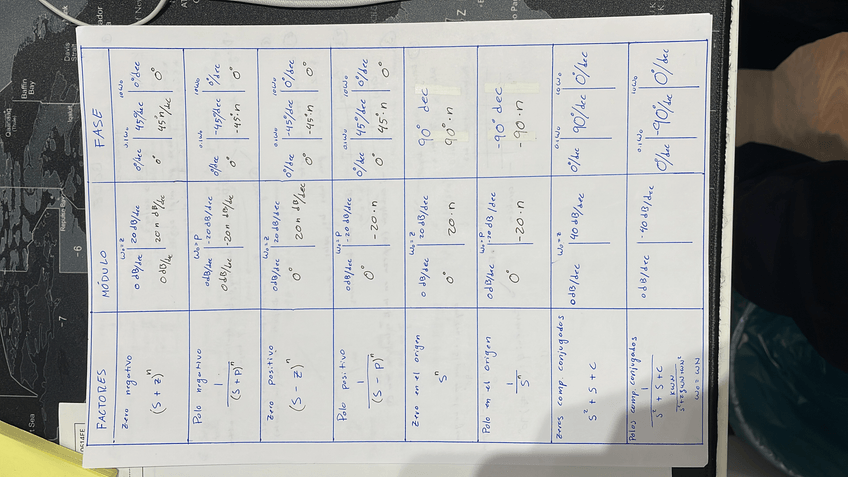 FACTORES MÓDULO FASE
Zero negativo
(S + Z)^n
W₀=Z
0 dB/dec | 20 dB/dec
0 dB/dec 20 n dB/dec
0.1W₀ 10W₀
0°/dec | 45°/dec | 0°/dec
0° 45°n/dec 0°
Polo negativo
1
(S+P)^n
W₀=P
0dB/dec | -20 dB/dec
0dB/dec -20n dB/dec
0.1W₀ 10W₀
0°/dec | -45°/dec | 0°/dec
0° -45·n 0°
Zero positivo
(S - Z)^n
W₀=Z
0dB/dec | 20 dB/dec
0° 20n dB/dec
0.1W₀ 10W₀
0°/dec | -45°/dec | 0°/dec
0° -45·n 0°
Polo positivo
1
(S - P)^n
W₀=P
0dB/dec | -20 dB/dec
0° -20·n
0.1W₀ 10W₀
0°/dec | 45°/dec | 0°/dec
0° 45·n 0°
Zero en el origen
S^n
W₀=Z
0 dB/dec | 20dB/dec
0° 20·n
90° dec
90°·n
Polo en el origen
1
S^n
W₀=P
0dB/dec | -20 dB/dec
0° -20·n
-90° dec
-90·n
Zeros comp conjugados
S² + S + C
W₀=Z
0dB/dec | 40 dB/dec
0.1W₀ 10W₀
0°/dec | 90°/dec | 0°/dec
Polos comp conjugados
1
S² + S + C
KWN
W₀=WN
0 dB/dec | -40 dB/dec
0.1W₀ 10W₀
0°/dec | -90°/dec | 0°/dec
Baffin
Bay
Davis
-6
-7
Z